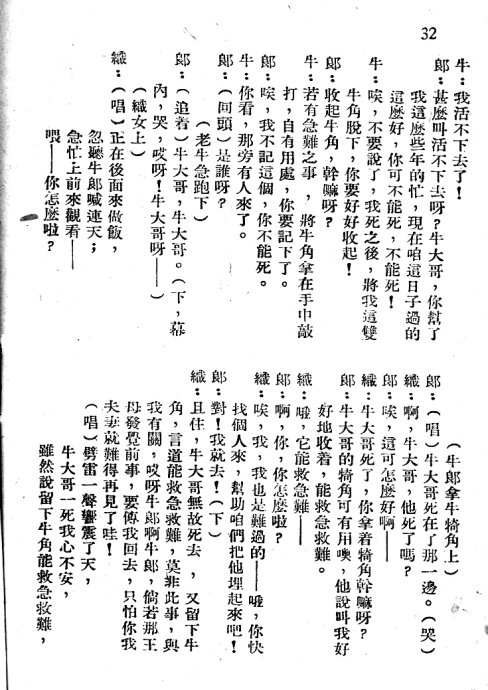 32
牛：我活不下去了！
郎：甚麼叫活不下去呀？牛大哥，你幫了
我這麼些年的忙，現在咱這日子過的
這麼好，你可不能死，不能死！
牛：唉，不要說了，我死之後，將我這雙
牛角脫下，你要好好收起！
郎：收起牛角，幹嘛呀？
牛：若有急難之事，將牛角拿在手中敲
打，自有用處，你要記下了。
郎：唉，我不記這個，你不能死。
牛：你看，那旁有人來了。
郎：（回頭）是誰呀？
（老牛急跑下）
郎：（追着）牛大哥，牛大哥。（下，幕
內，哭，哎呀！牛大哥呀——）
（織女上）
織：（唱）正在後面來做飯，
忽聽牛郎喊連天；
急忙上前來觀看——
喂——你怎麼啦？
（牛郎拿牛犄角上）
郎：（唱）牛大哥死在了那一邊。（哭）
織：啊，牛大哥，他死了嗎？
郎：唉，這可怎麼好啊！
織：牛大哥死了，你拿着犄角幹嘛呀？
郎：牛大哥的犄角可有用噢，他說叫我好
好地收着，能救急救難。
織：哦，它能救急救難——
郎：啊，你，你怎麼啦？
織：唉，我，我也是難過的——哦，你快
找個人來，幫助咱們把他埋起來吧！
郎：對！我就去！（下）
織：且住，牛大哥無故死去，又留下牛
角，言道能救急救難，莫非此事，與
我有關，哎呀牛郎啊牛郎，倘若那王
母發覺前事，要傳我回去，只怕你我
夫妻就難得再見了哇！
（唱）劈雷一聲響震了天，
牛大哥一死我心不安，
雖然說留下牛角能救急救難，